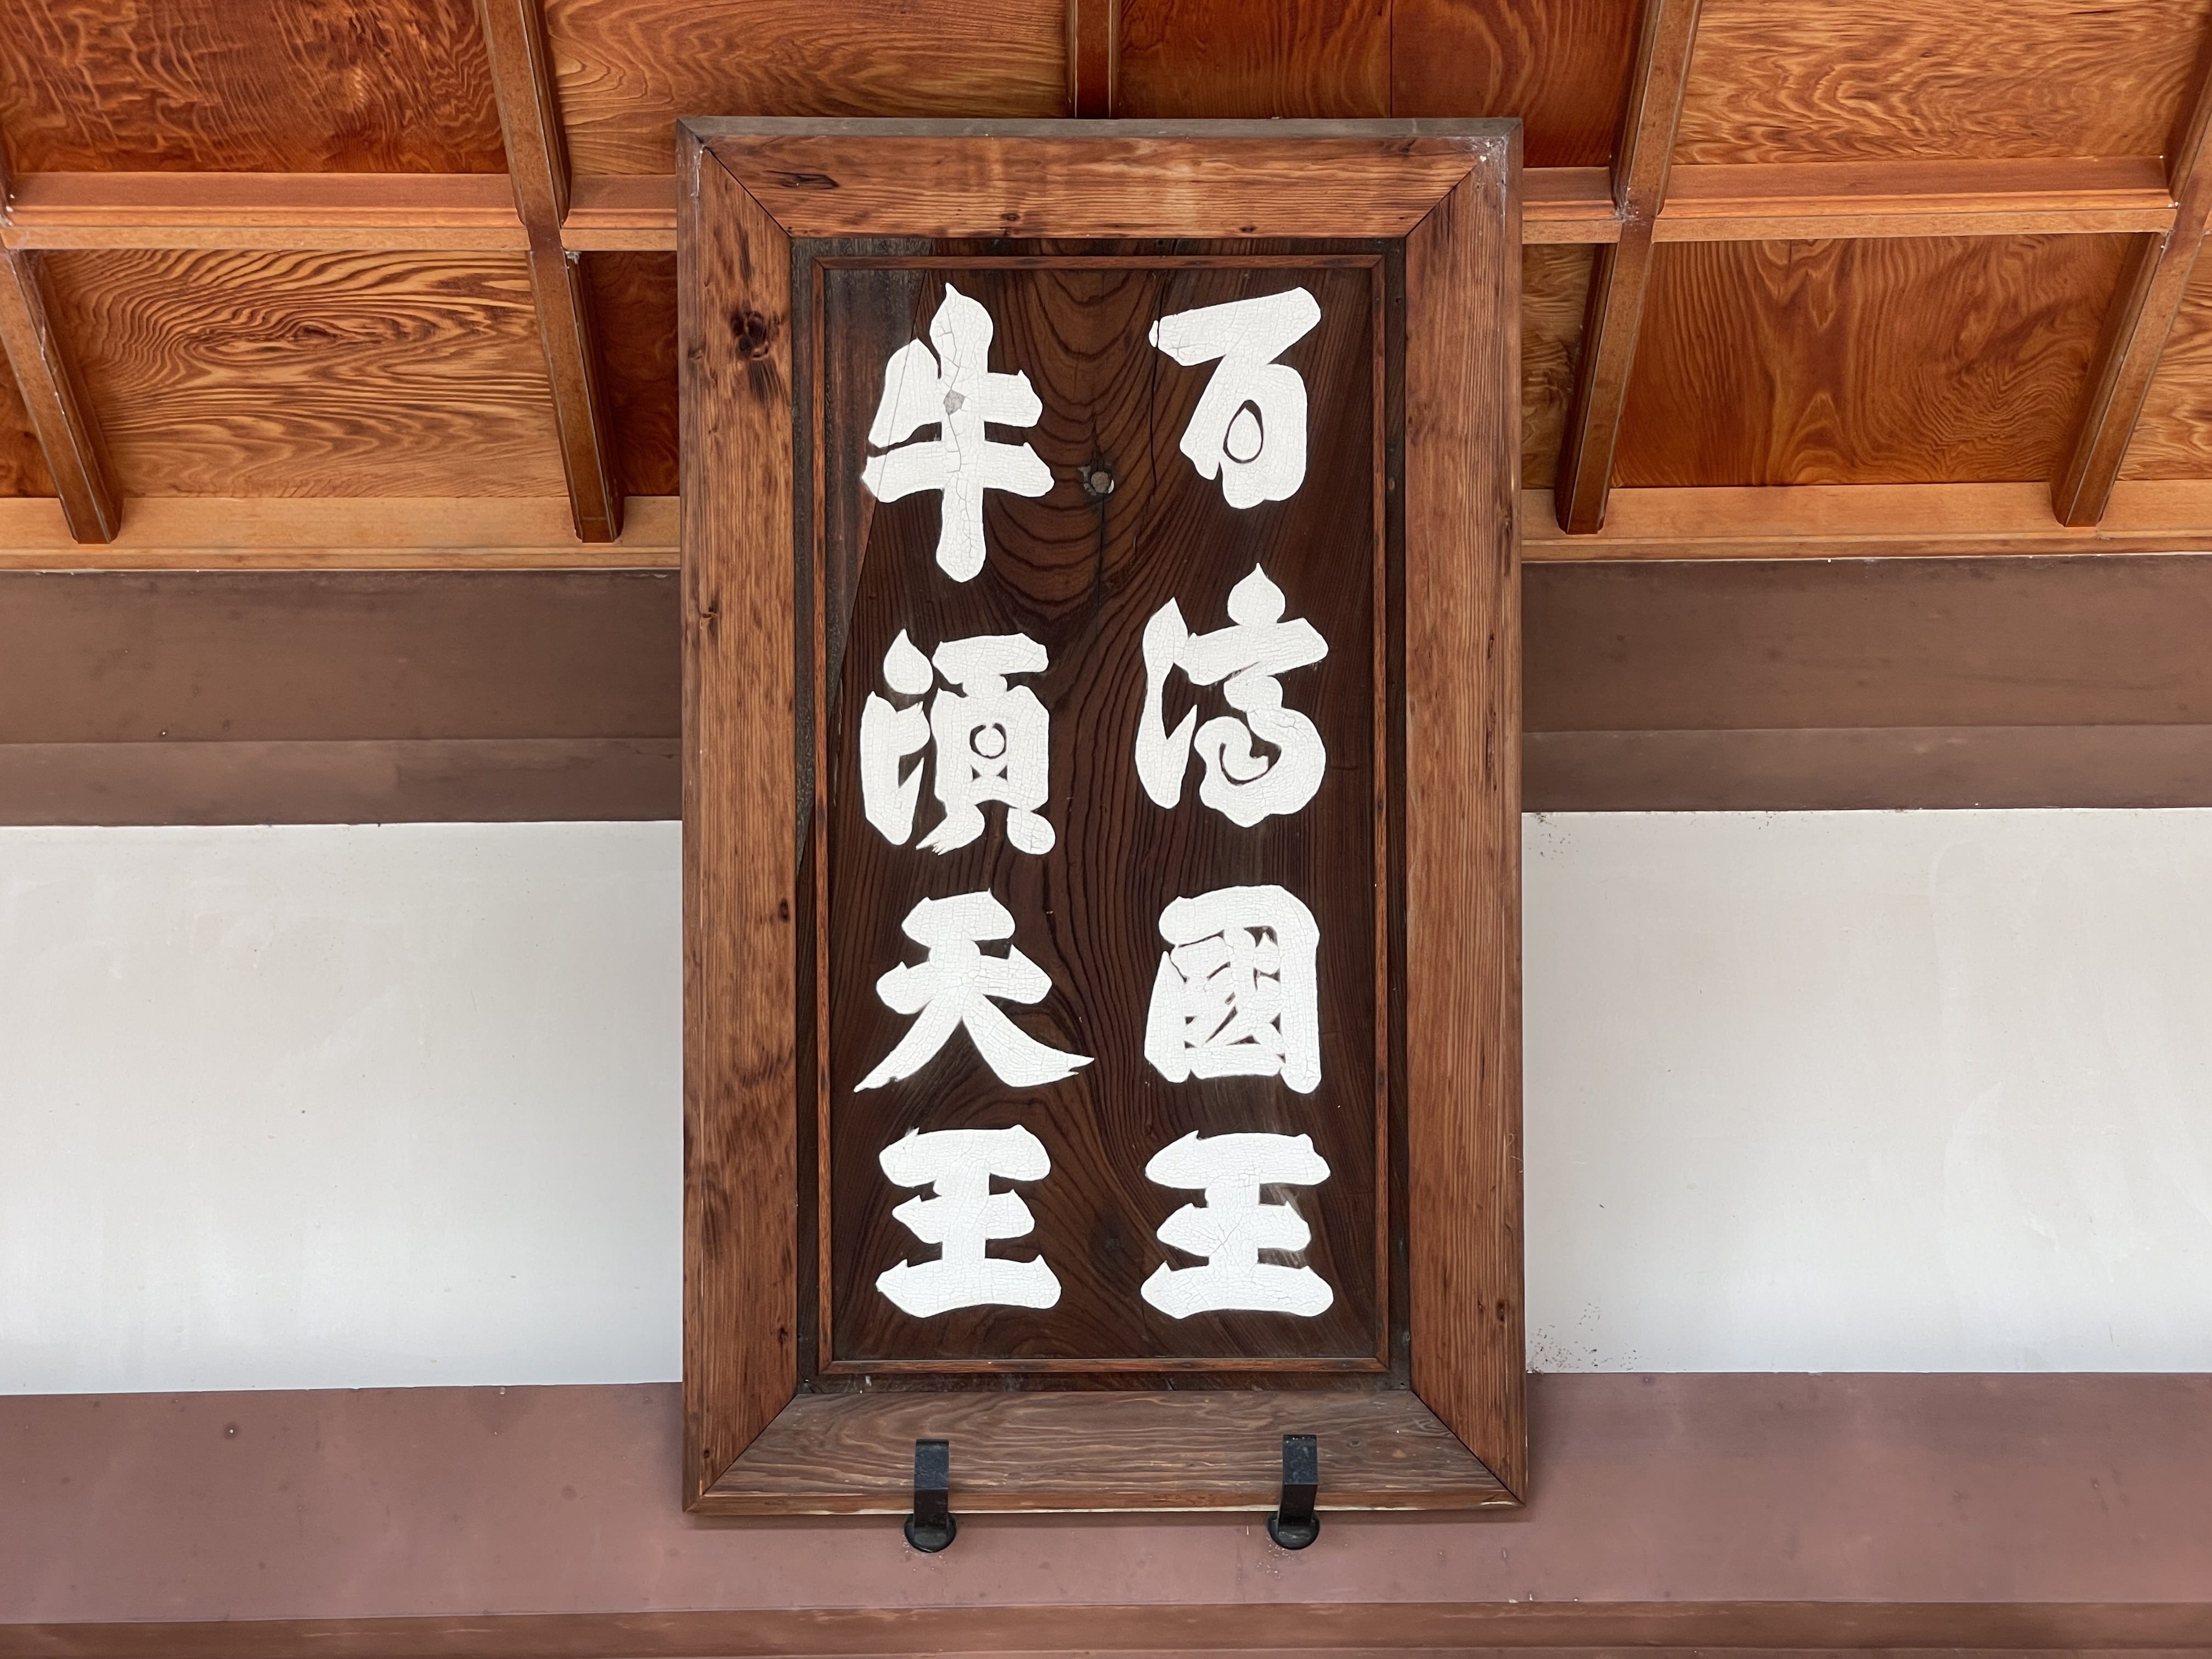 百済國王
牛頭天王